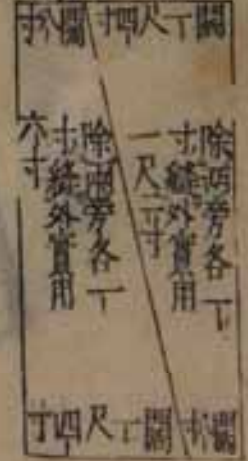 闊一尺四寸
闊八寸
除兩旁各一
寸縫外實用
一尺二寸
除兩旁各一
寸縫外實用
六寸
闊八寸
闊一尺四寸